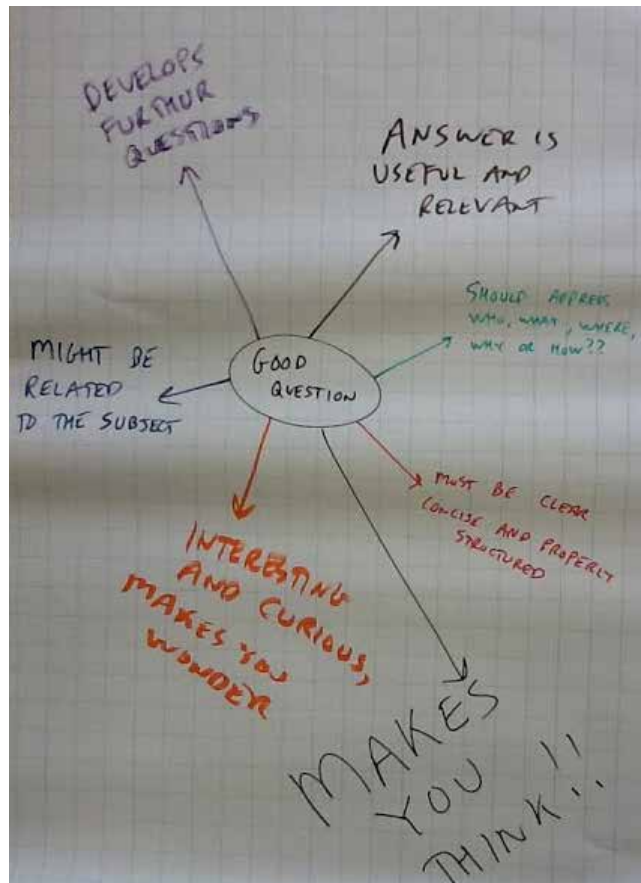 DEVELOPS
FURTHUR
QUESTIONS
ANSWER IS
USEFUL AND
RELEVANT
SHOULD ADDRESS
WHO, WHAT, WHERE,
WHY OR HOW??
GOOD
QUESTION
MIGHT BE
RELATED
TO THE SUBJECT
MUST BE CLEAR
CONCISE AND PROPERLY
STRUCTURED
INTERESTING
AND CURIOUS,
MAKES YOU
WONDER
MAKES
YOU
THINK!!